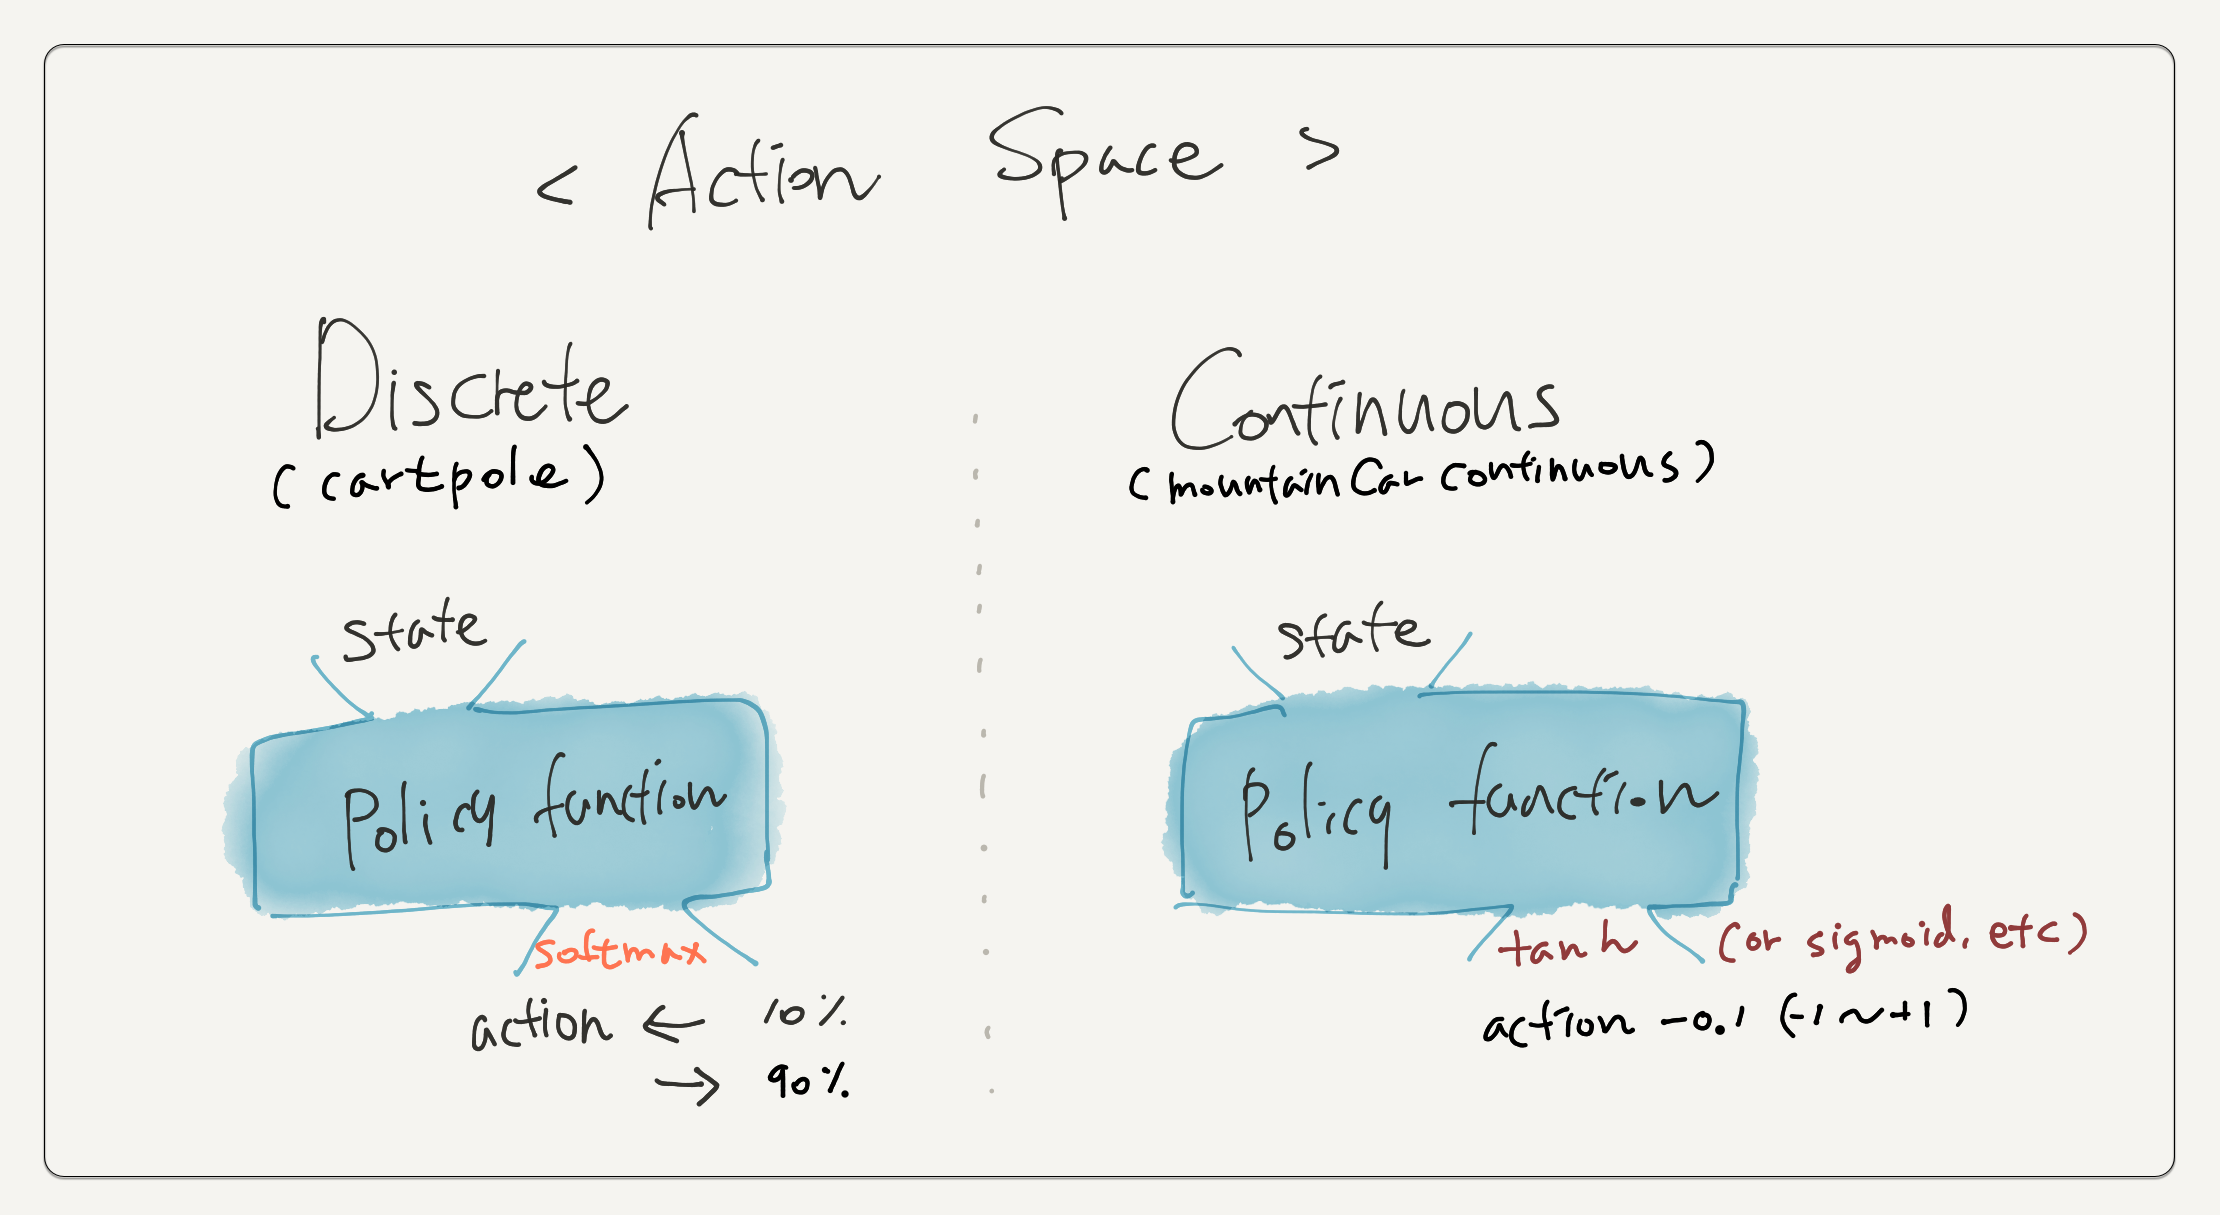 < Action Space >
Discrete
(cartpole)
state
Policy function
softmax
action ← 10%
→ 90%
Continuous
(mountainCar continuous)
state
Policy function
tanh (or sigmoid, etc)
action -0.1 (-1 ~ +1)